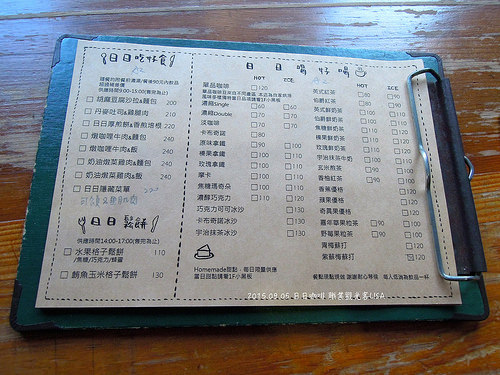 日日吃好食
供應時間9:00-15:00(售完為止)
胡麻豆腐沙拉&麵包 200
丹麥吐司&雞腿肉 210
日日厚煎餅&香煎培根 220
燉咖哩牛肉&麵包 240
燉咖哩牛肉&飯 240
奶油燉菜雞肉&麵包 240
奶油燉菜雞肉&飯 240
日日隱藏菜單
日日鬆餅
供應時間14:00-17:00(售完為止)
水果格子鬆餅 110
/焦糖/巧克力/蜂蜜
鮪魚玉米格子鬆餅 130
日日喝好喝
HOT ICE
單品咖啡 120
濃縮Single 60 60
濃縮Double 70 70
淡咖啡 70 70
卡布奇諾 80
原味拿鐵 90 100
榛果拿鐵 100 110
玫瑰拿鐵 100 110
摩卡 100 110
焦糖瑪奇朵 100 110
濃醇巧克力 110 120
巧克力可可冰沙 130
卡布奇諾冰沙 130
宇治抹茶冰沙 130
Homemade甜點，每日限量供應
當日甜點請看1F小黑板
HOT ICE
英式紅茶 90
伯爵紅茶 90
英式鮮奶茶
伯爵鮮奶茶
焦糖鮮奶茶
榛果鮮奶茶
玫瑰鮮奶茶
宇治抹茶牛奶 100 110
玄米煎茶 90 100
香柚紅茶 90 100
香蕉優格 120
蘋果優格 120
奇異果優格 120
嘉年華果粒茶 90 100
野莓果粒茶 90 100
青梅蘇打 120
紫蘇梅蘇打 120
2015.09.05 日日咖啡 職業觀光客USA